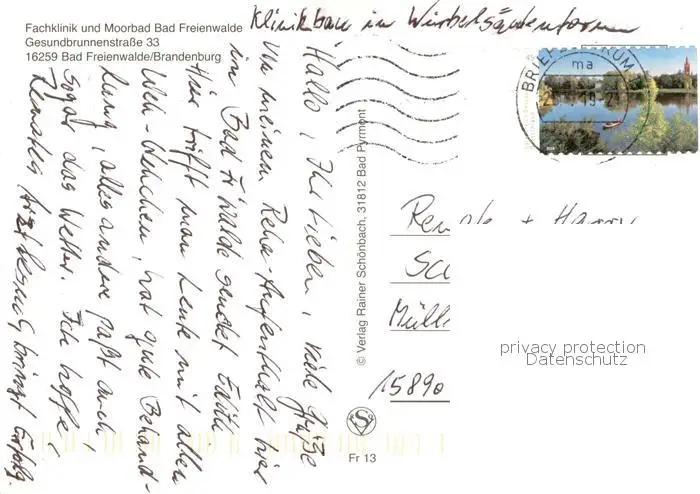 Fachklinik und Moorbad Bad Freienwalde
Gesundbrunnenstraße 33
16259 Bad Freienwalde/Brandenburg
Klinikbau in Wirbelsäulenform
Hallo, Ihr Lieben, viele Grüße
von meinem Reha-Aufenthalt hier
in Bad F'walde sendet Edith
Hier trifft man Leute mit allen
Weh-Wehchen, hat gute Behand-
lung, alles andere paßt auch,
sogar das Wetter. Ich hoffe,
Renates Arztbesuch bringt Erfolg.
© Verlag Rainer Schönbach, 31812 Bad Pyrmont
BRIEFZENTRUM
ma
Renate + Harry
Müll
15890
privacy protection
Datenschutz
S
Fr 13